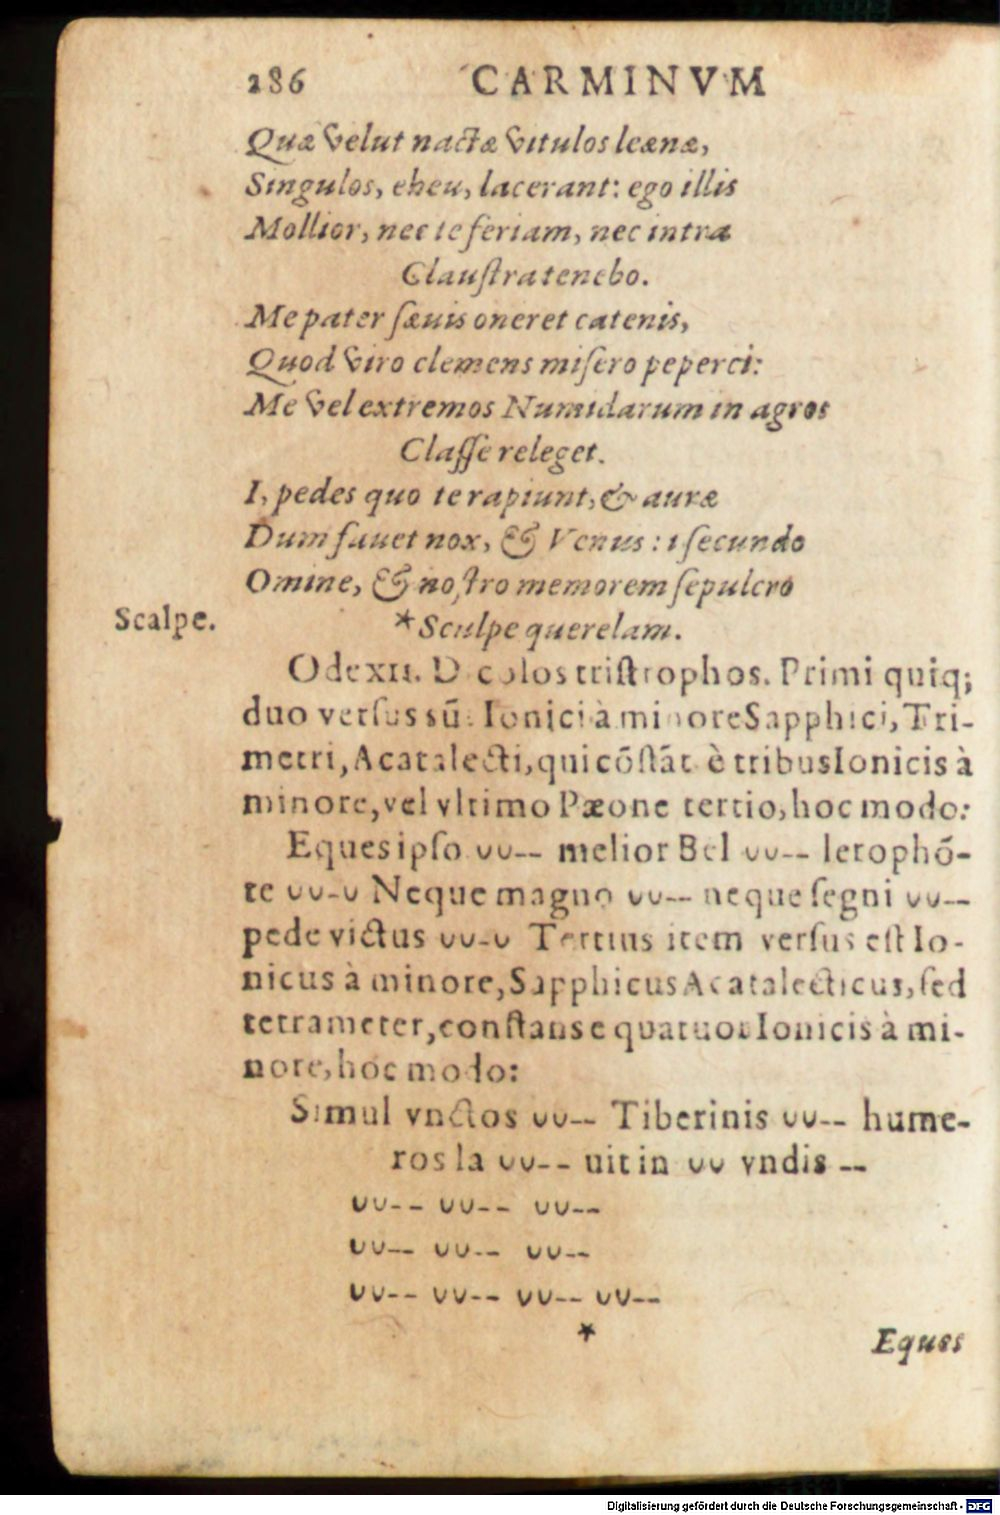 286 CARMINVM
Quæ velut nactæ vitulos leænæ,
Singulos, eheu, lacerant: ego illis
Mollior, nec te feriam, nec intra
Claustra tenebo.
Me pater sæuis oneret catenis,
Quod viro clemens misero peperci:
Me vel extremos Numidarum in agros
Classe releget.
I, pedes quo te rapiunt, & auræ
Dum fauet nox, & Venus: i secundo
Omine, & nostro memorem sepulcro
Scalpe. *Sculpe querelam.
Ode xii. Dicolos tristrophos. Primi quiq;
duo versus sũt Ionici à minore Sapphici, Tri-
metri, Acatalecti, qui cõstãt è tribus Ionicis à
minore, vel vltimo Pæone tertio, hoc modo:
Eques ipso ∪∪-- melior Bel ∪∪-- lerophõ-
te ∪∪-∪ Neque magno ∪∪-- neque segni ∪∪--
pede victus ∪∪-∪ Tertius item versus est Io-
nicus à minore, Sapphicus Acatalecticus, sed
tetrameter, constans e quatuor Ionicis à mi-
nore, hoc modo:
Simul vnctos ∪∪-- Tiberinis ∪∪-- hume-
ros la ∪∪-- uit in ∪∪ vndis --
∪∪-- ∪∪-- ∪∪--
∪∪-- ∪∪-- ∪∪--
∪∪-- ∪∪-- ∪∪-- ∪∪--
*
Eques
Digitalisierung gefördert durch die Deutsche Forschungsgemeinschaft - DFG